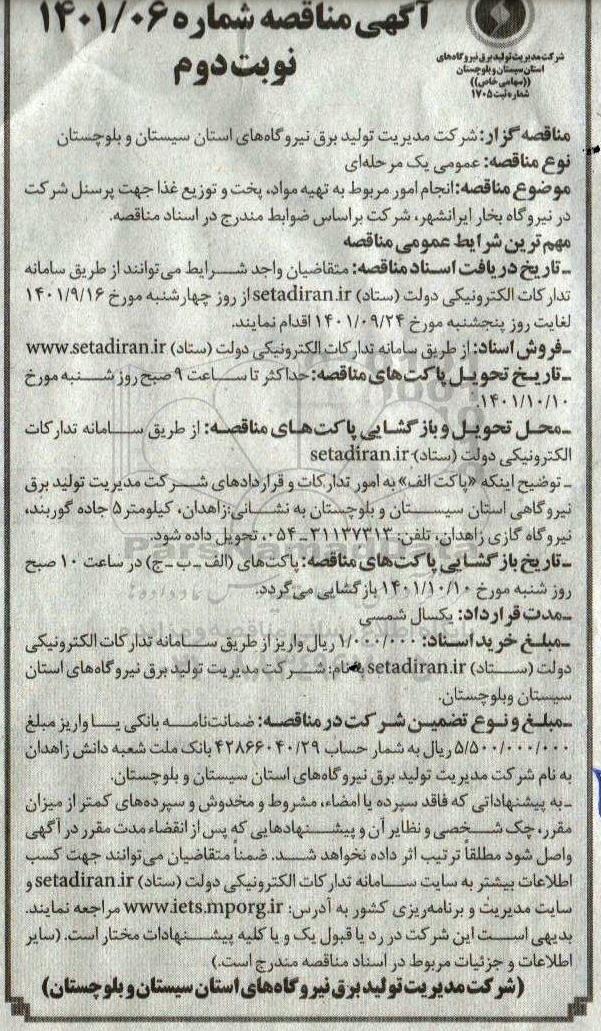 آگهی مناقصه شماره ۱۴۰۱/۰۶
نوبت دوم
شرکت مدیریت تولید برق نیروگاه‌های
استان سیستان و بلوچستان
((سهامی خاص))
شماره ثبت ۱۷۰۵
مناقصه گزار: شرکت مدیریت تولید برق نیروگاه‌های استان سیستان و بلوچستان
نوع مناقصه: عمومی یک مرحله‌ای
موضوع مناقصه: انجام امور مربوط به تهیه مواد، پخت و توزیع غذا جهت پرسنل شرکت
در نیروگاه بخار ایرانشهر، شرکت براساس ضوابط مندرج در اسناد مناقصه.
مهم ترین شرایط عمومی مناقصه
ـ تاریخ دریافت اسناد مناقصه: متقاضیان واجد شرایط می‌توانند از طریق سامانه
تدارکات الکترونیکی دولت (ستاد) setadiran.ir از روز چهارشنبه مورخ ۱۴۰۱/۹/۱۶
لغایت روز پنجشنبه مورخ ۱۴۰۱/۰۹/۲۴ اقدام نمایند.
ـ فروش اسناد: از طریق سامانه تدارکات الکترونیکی دولت (ستاد) www.setadiran.ir
ـ تاریخ تحویل پاکت‌های مناقصه: حداکثر تا ساعت ۹ صبح روز شنبه مورخ
۱۴۰۱/۱۰/۱۰.
ـ محل تحویل و بازگشایی پاکت‌های مناقصه: از طریق سامانه تدارکات
الکترونیکی دولت (ستاد) setadiran.ir
ـ توضیح اینکه «پاکت الف» به امور تدارکات و قراردادهای شرکت مدیریت تولید برق
نیروگاهی استان سیستان و بلوچستان به نشانی: زاهدان، کیلومتر ۵ جاده گوربند،
نیروگاه گازی زاهدان، تلفن: ۳۱۱۳۷۳۱۳ ـ ۰۵۴، تحویل داده شود.
ـ تاریخ بازگشایی پاکت‌های مناقصه: پاکت‌های (الف ـ ب ـ ج) در ساعت ۱۰ صبح
روز شنبه مورخ ۱۴۰۱/۱۰/۱۰ بازگشایی می‌گردد.
ـ مدت قرارداد: یکسال شمسی
ـ مبلغ خرید اسناد: ۱/۰۰۰/۰۰۰ ریال واریز از طریق سامانه تدارکات الکترونیکی
دولت (ستاد) setadiran.ir به نام: شرکت مدیریت تولید برق نیروگاه‌های استان
سیستان وبلوچستان.
ـ مبلغ و نوع تضمین شرکت در مناقصه: ضمانت‌نامه بانکی یا واریز مبلغ
۵/۵۰۰/۰۰۰/۰۰۰ ریال به شمار حساب ۴۲۸۶۶۰۴۰/۲۹ بانک ملت شعبه دانش زاهدان
به نام شرکت مدیریت تولید برق نیروگاه‌های استان سیستان و بلوچستان.
ـ به پیشنهاداتی که فاقد سپرده یا امضاء، مشروط و مخدوش و سپرده‌های کمتر از میزان
مقرر، چک شخصی و نظایر آن و پیشنهادهایی که پس از انقضاء مدت مقرر در آگهی
واصل شود مطلقاً ترتیب اثر داده نخواهد شد. ضمناً متقاضیان می‌توانند جهت کسب
اطلاعات بیشتر به سایت سامانه تدارکات الکترونیکی دولت (ستاد) setadiran.ir و
سایت مدیریت و برنامه‌ریزی کشور به آدرس: www.iets.mporg.ir مراجعه نمایند.
بدیهی است این شرکت در رد یا قبول یک و یا کلیه پیشنهادات مختار است. (سایر
اطلاعات و جزئیات مربوط در اسناد مناقصه مندرج است.)
(شرکت مدیریت تولید برق نیروگاه‌های استان سیستان و بلوچستان)